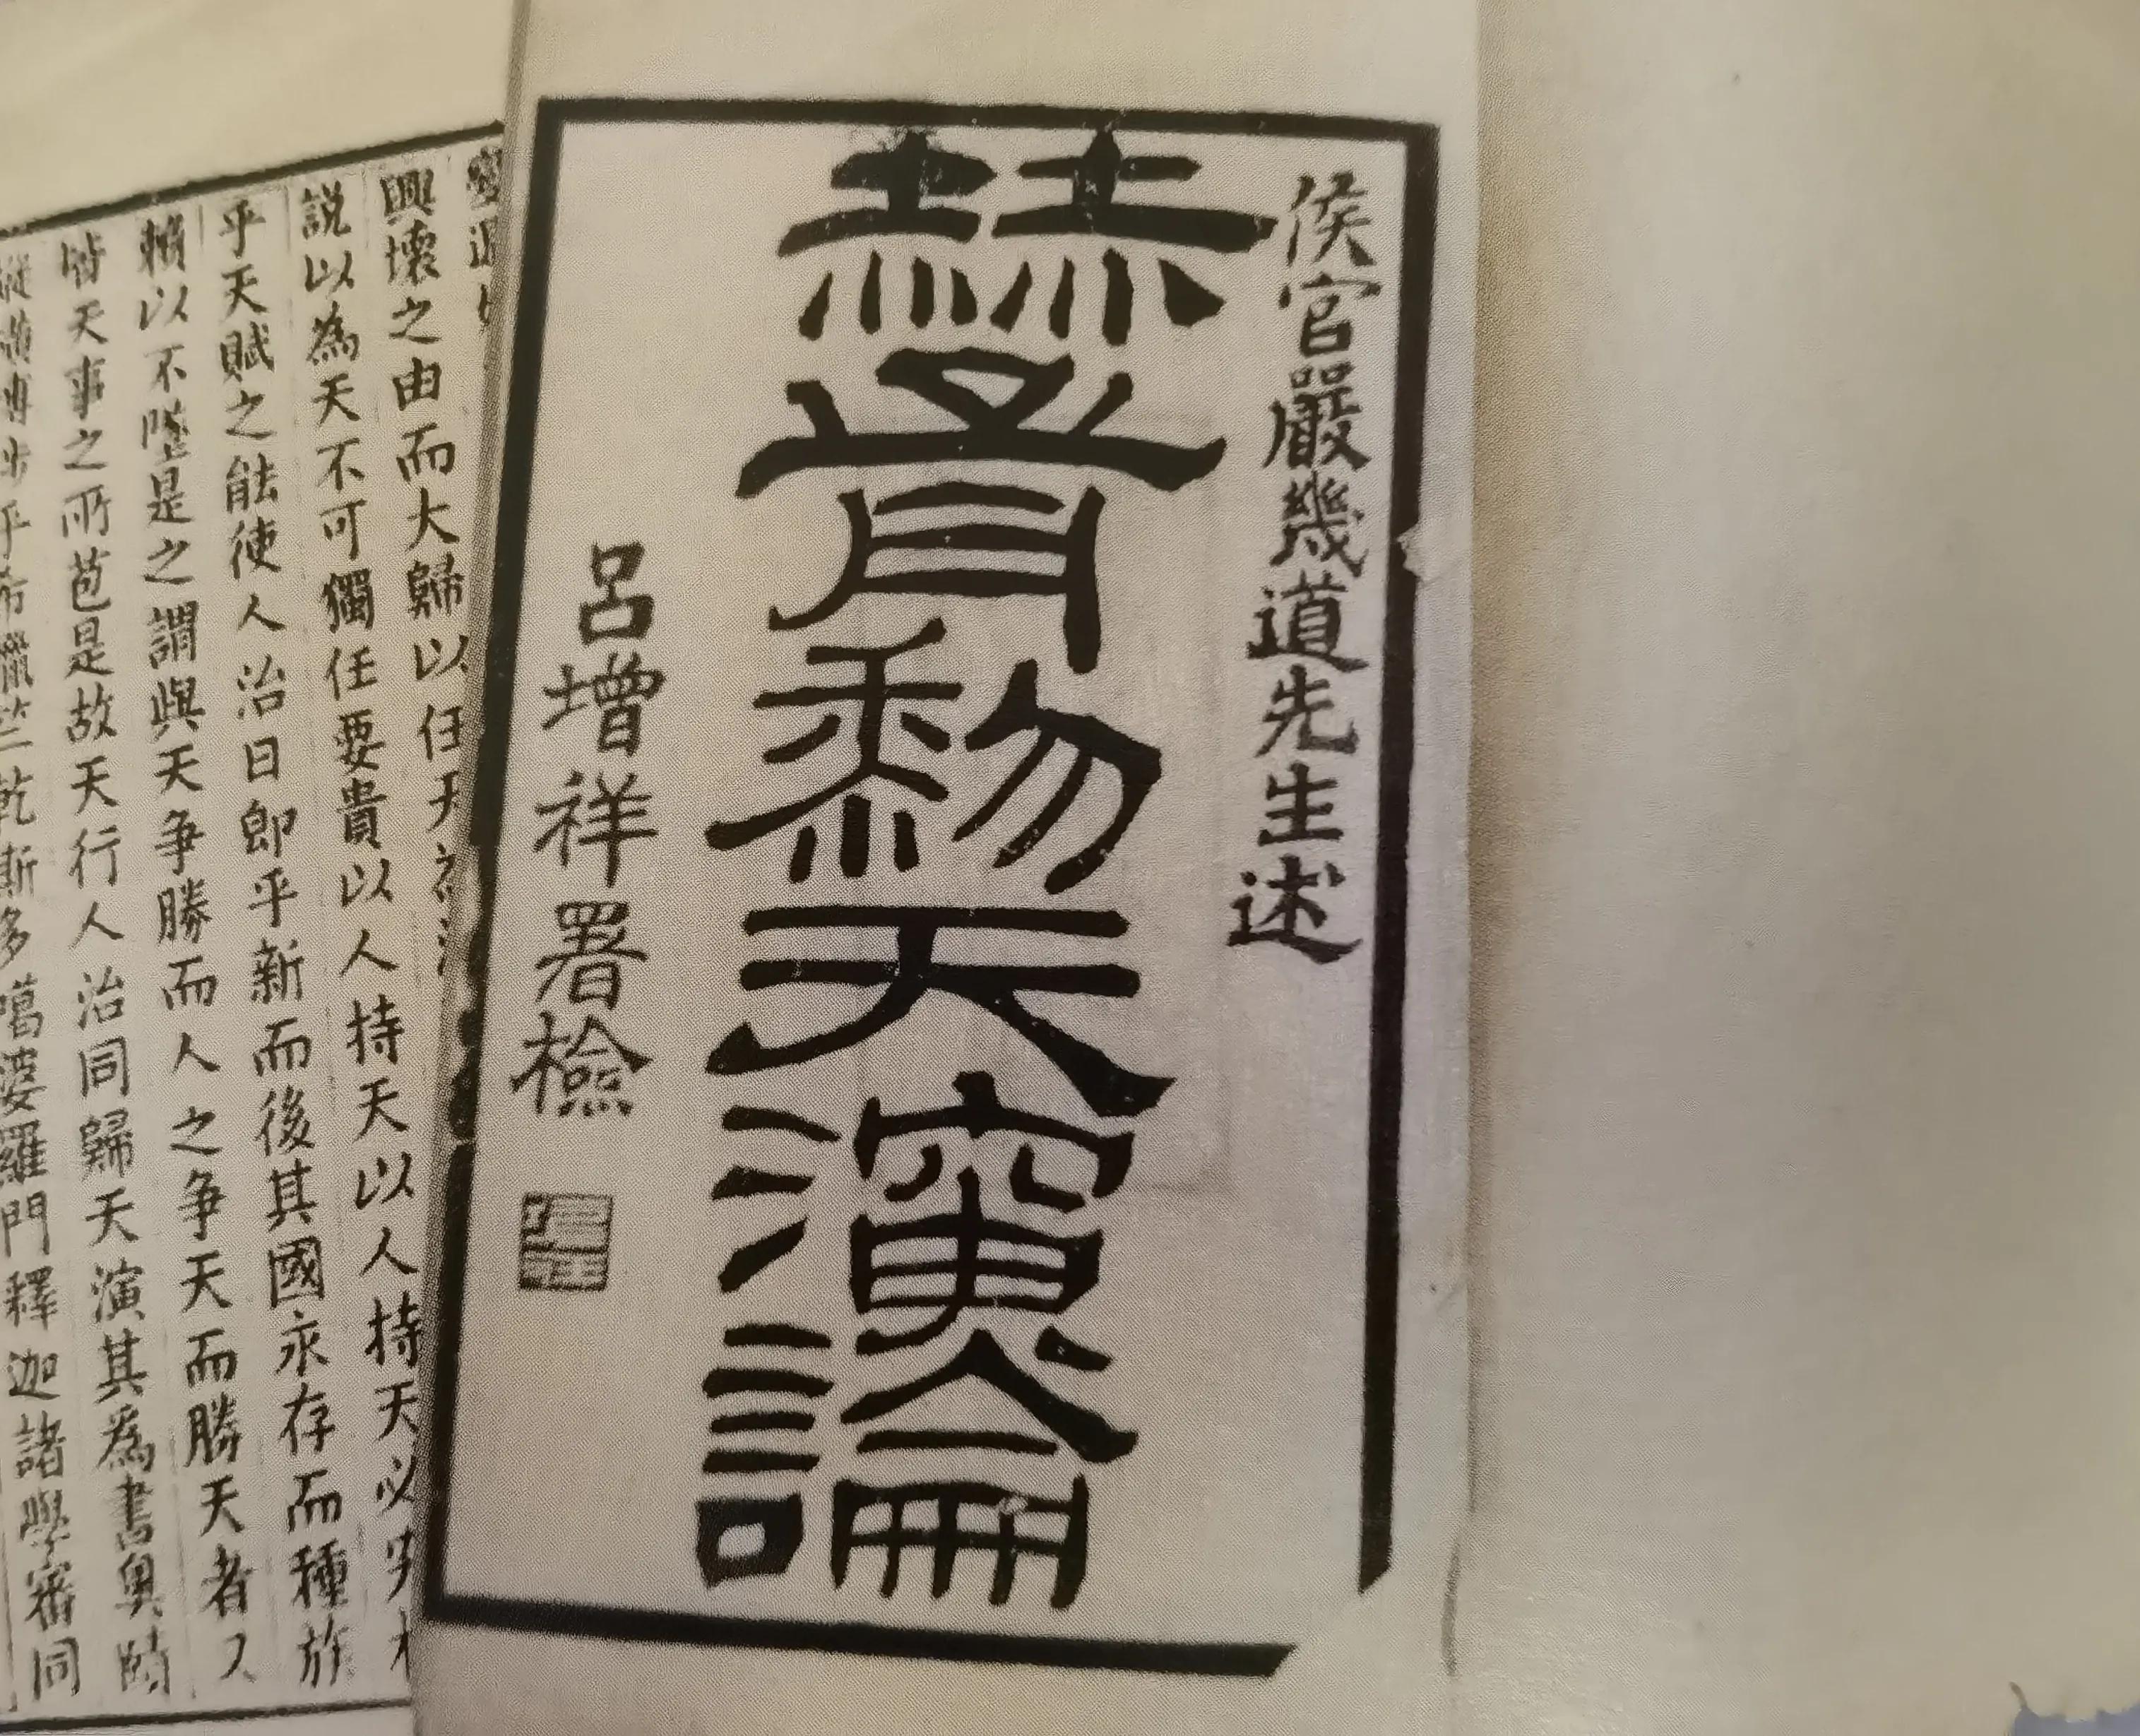 侯官嚴幾道先生述
赫胥黎天演論
呂增祥署檢
興壞之由而大歸以任天
說以為天不可獨任要貴以人持天以人持天必
乎天賦之能使人治日即乎新而後其國永存而種族
賴以不墜是之謂與天爭勝而人之爭天而勝天者又
皆天事之所苞是故天行人治同歸天演其為書奧賾
乎希臘竺乾斯多噶婆羅門釋迦諸學審同